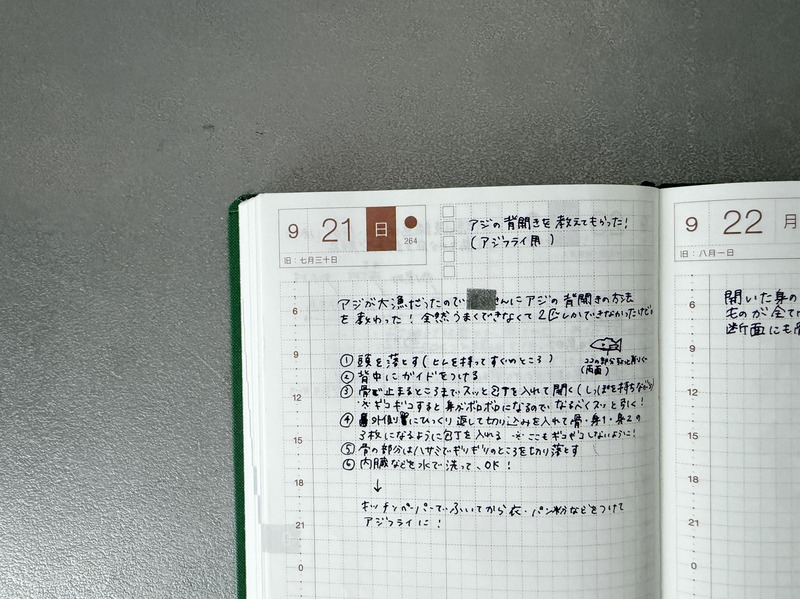 9 21 日
264
旧：七月三十日
アジの背開きを教えてもらった！
(アジフライ用)
アジが大漁だったので さんにアジの背開きの方法
を教わった！全然うまくできなくて2匹しかできなかったけど。
① 頭を落とす(ヒレを持ってすぐのところ)
ココの部分もっと削りぐ
(両面)
② 背中にガイドをつける
③ 骨で止まるところまでスッと包丁を入れて開く(しっぽを持ちながら)
※ギコギコすると身がボロボロになるので なるべくスッと引く！
④ 外側にひっくり返して切り込みを入れて骨・身1・身2の
3枚になるように包丁を入れる ※ここもギコギコしないように！
⑤ 骨の部分はハサミでギリギリのところを切り落とす
⑥ 内臓などを水で洗って、OK！
↓
キッチンペーパーでふいてから衣・パン粉などをつけて
アジフライに！
6
9
12
15
18
21
0
9 22 月
旧：八月一日
開いた身の
ものが全て
断面にも骨
6
9
12
15
18
21
0